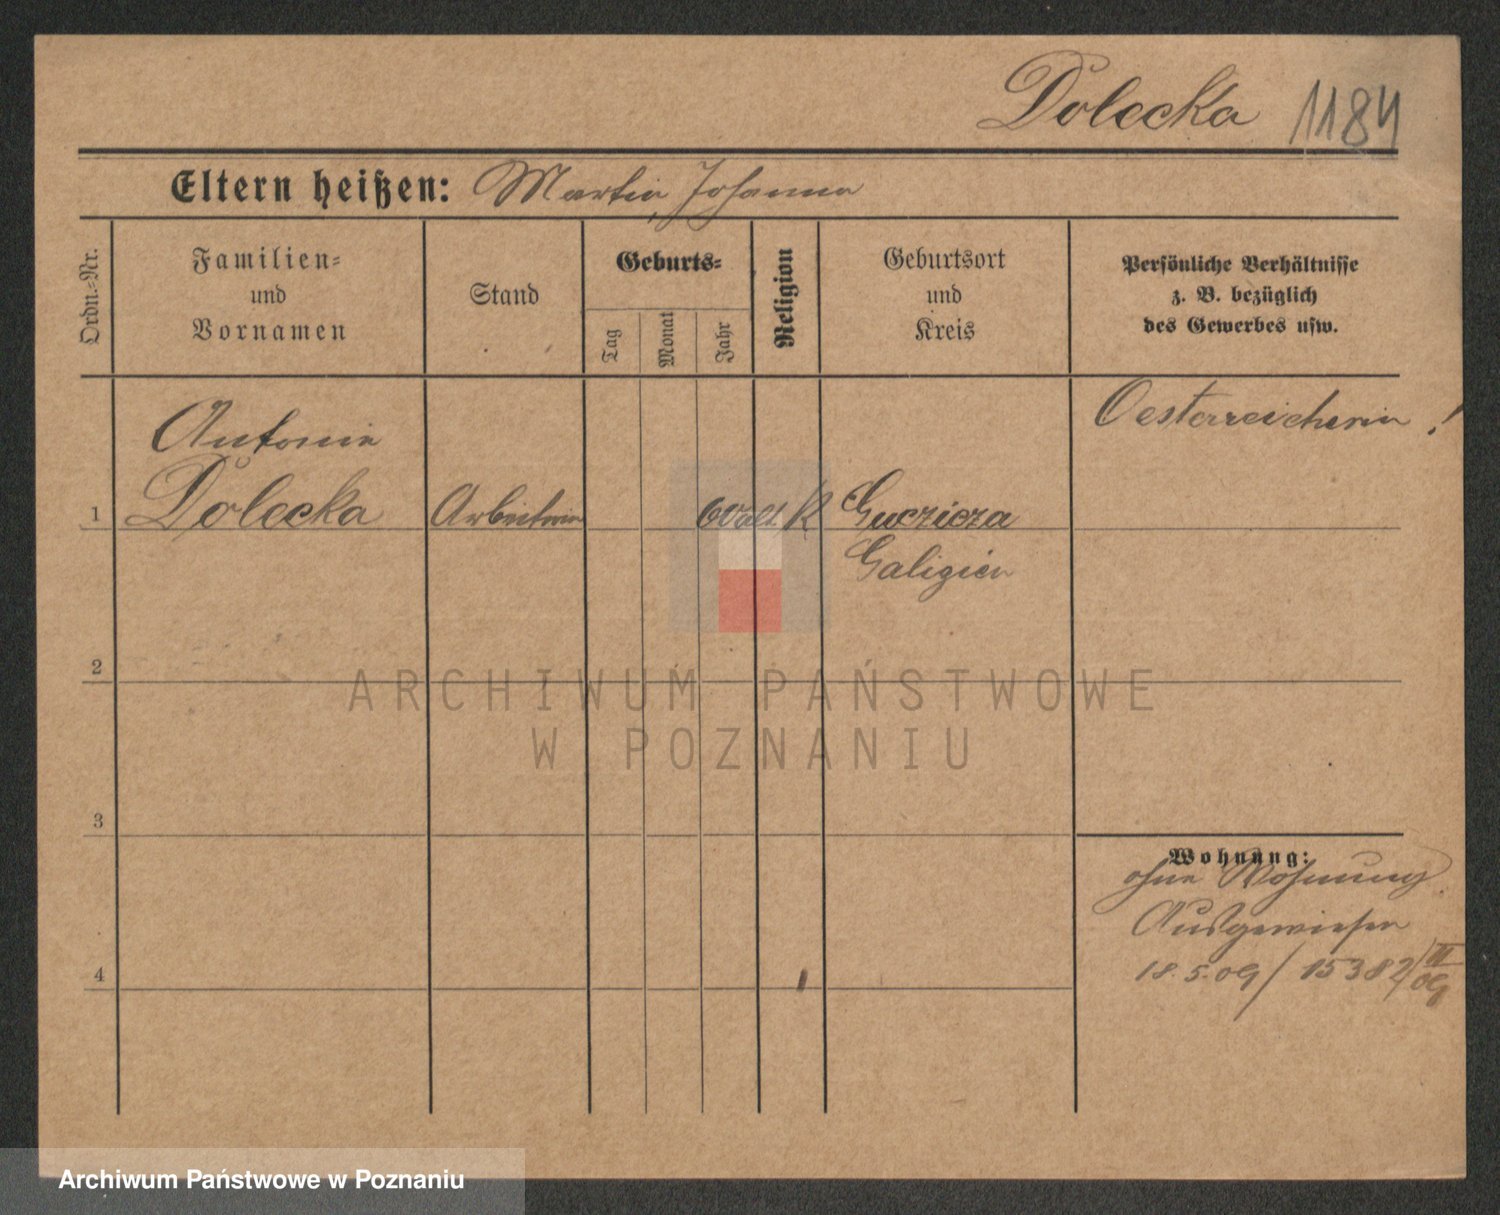 Dolecka 1184
Eltern heißen: Martin, Johanna
Ordn.-Nr.
Familien-
und
Vornamen
Stand
Geburts-
Tag
Monat
Jahr
Religion
Geburtsort
und
Kreis
Persönliche Verhältnisse
z. B. bezüglich
des Gewerbes usw.
Oesterreicherin !
Antonie
1 Dolecka Arbeiterin K
Galizien
2
ARCHIWUM PAŃSTWOWE
W POZNANIU
3
Wohnung:
ohne Wohnung
Ausgewiesen
18.5.09/15382/III 09
4
Archiwum Państwowe w Poznaniu